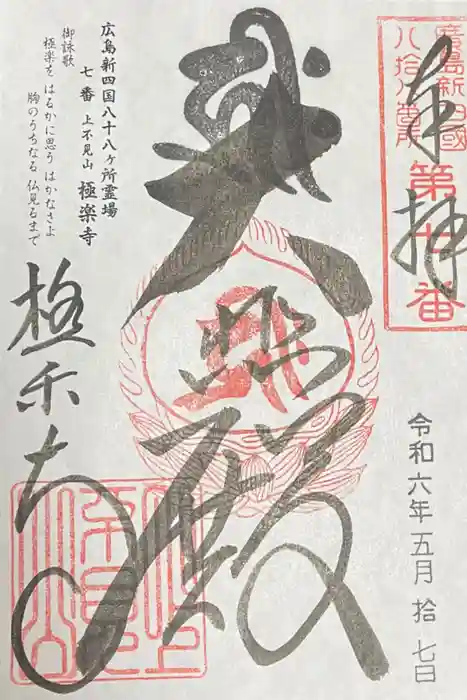 廣島新四國
八拾八番所
第七番
奉拝
令和六年五月拾七日
無量殿
広島新四国八十八ヶ所霊場
七番 上不見山 極楽寺
御詠歌
極楽を はるかに思う はかなさよ
胸のうちなる 仏見るまで
極楽寺